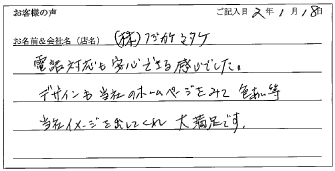 お客様の声
ご記入日 2年1月18日
お名前&会社名(店名) (株)フジガケマタケ
電話対応も安心できる感じでした。
デザインも当社のホームページをみて 色あい等
当社イメージを出してくれ 大満足です。